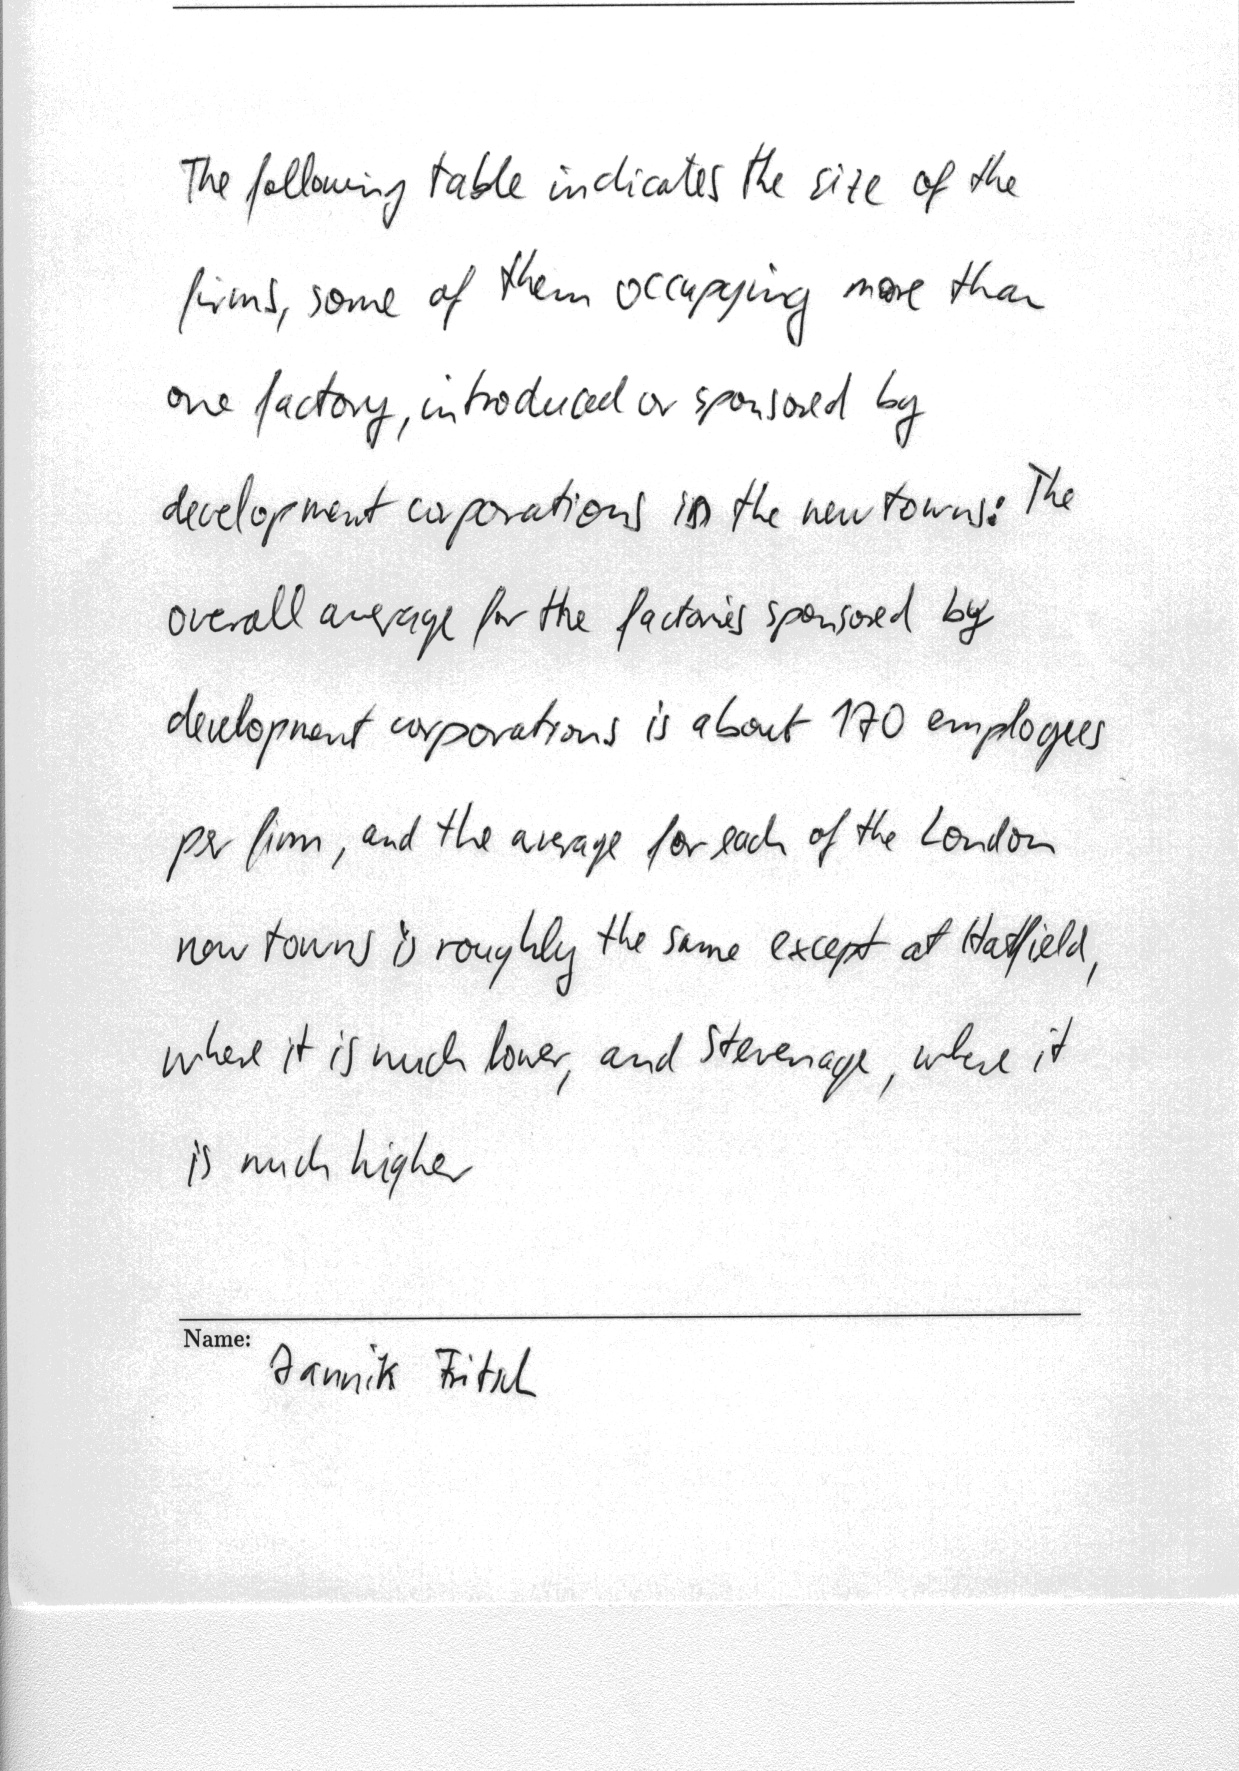 The following table indicates the size of the
firms, some of them occupying more than
one factory, introduced or sponsored by
development corporations in the new towns: The
overall average for the factories sponsored by
development corporations is about 170 employees
per firm, and the average for each of the London
new towns is roughly the same except at Hatfield,
where it is much lower, and Stevenage, where it
is much higher
Name:
Jannik Fritsch